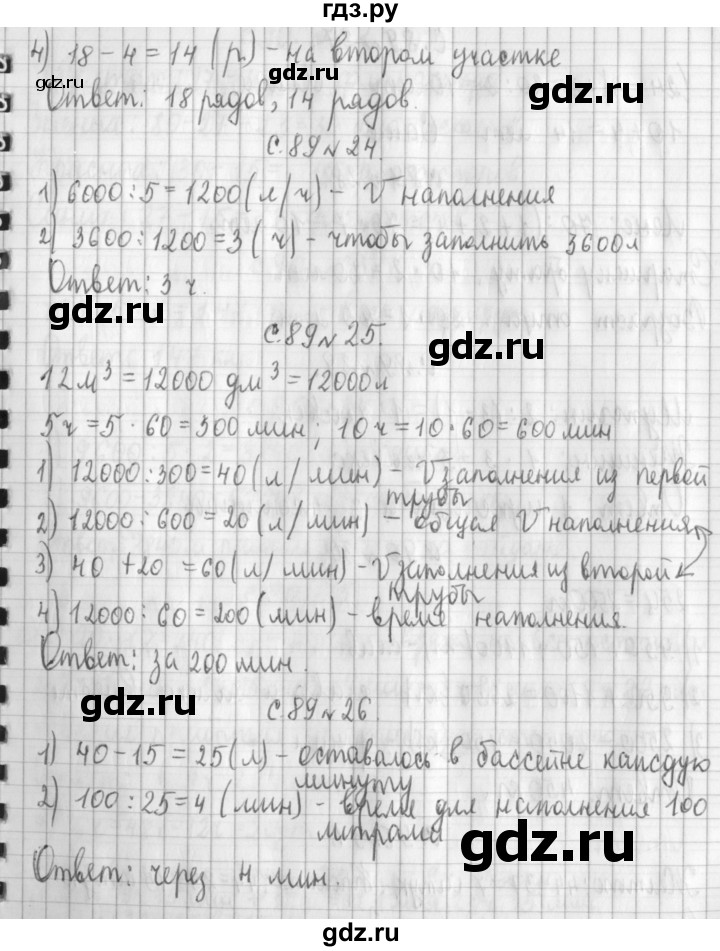 гдз.ру
4) 18 - 4 = 14 (р.) - на втором участке
gdz.ru
gdz.ru
gdz.ru
Ответ: 18 рядов, 14 рядов.
с.89 №24.
1) 6000 : 5 = 1200 (л/ч) - V наполнения
gdz.ru
2) 3600 : 1200 = 3 (ч) - чтобы заполнить 3600 л
Ответ: 3 ч.
gdz.ru
с.89 №25.
gdz.ru
12 м³ = 12000 дм³ = 12000 л
5 ч = 5 · 60 = 300 мин; 10 ч = 10 · 60 = 600 мин
1) 12000 : 300 = 40 (л/мин) - V заполнения из первой
трубы
2) 12000 : 600 = 20 (л/мин) - общая V наполнения
gdz.ru
3) 40 + 20 = 60 (л/мин) - V заполнения из второй
трубы
4) 12000 : 60 = 200 (мин) - время наполнения.
gdz.ru
Ответ: за 200 мин.
gdz.ru
с.89 №26.
1) 40 - 15 = 25 (л) - оставалось в бассейне каждую
минуту
2) 100 : 25 = 4 (мин) - время для наполнения 100
литрами
gdz.ru
Ответ: через 4 мин.
gdz.ru